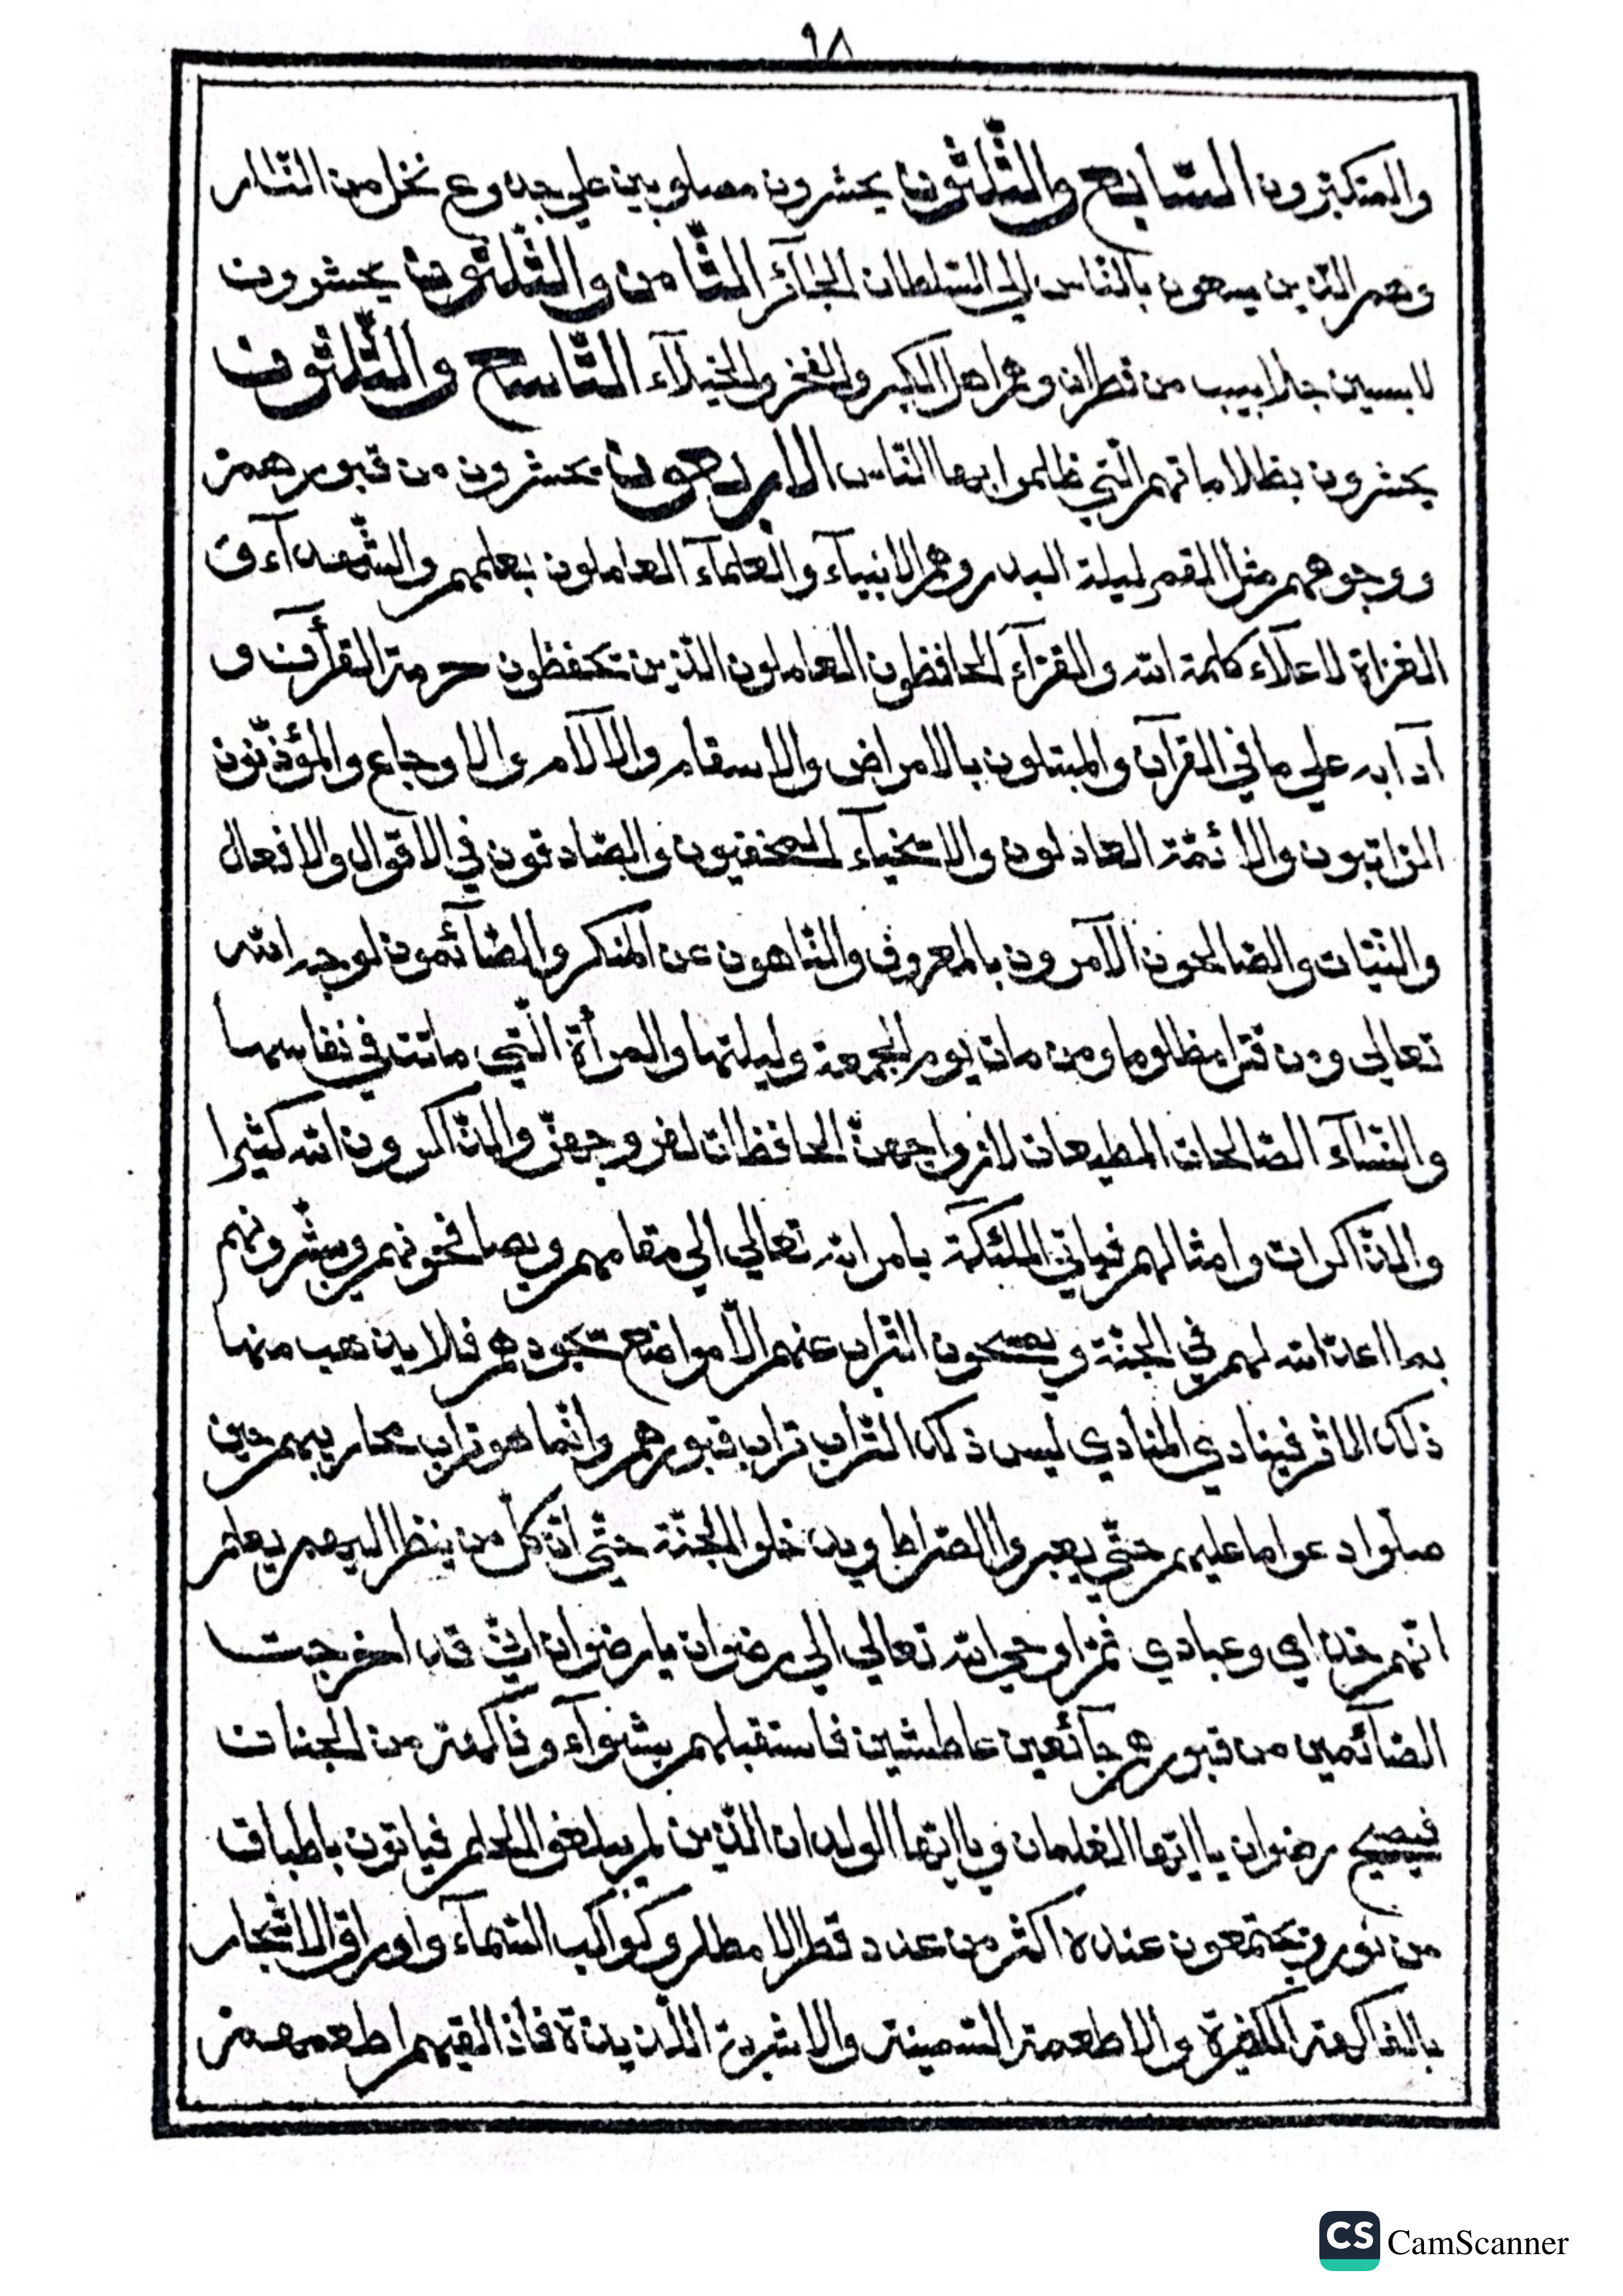 ٩٨
والمتكبّرون السّابع والثّلثون يحشرون مصلوبين علي جدوع نخل من النّار
وهم الّذين يسعون بالنّاس الي السّلطان الجآئر الثّامن والثّلثون يحشرون
لابسين جلابيب من قطران وهم اهل الكبر والفخر والخيلآء التّاسع والثّلثون
يحشرون بظلاماتهم الّتي ظلموا بها النّاس الاربعون يحشرون من قبورهم
ووجوههم مثل القمر ليلة البدر وهم الانبيآء والعلمآء العاملون بعلمهم والشّهدآء في
الغزاة لاعلآء كلمة الله والقرّآء الحافظون العاملون الّذين يحفظون حرمة القرأن و
آدابه علي ما في القرآن والمبتلون بالامراض والاسقام والآلام والاوجاع والمؤذّنون
الرّاتبون والائمّة العادلون والاسخيآء المخفيون والصّادقون في الاقوال والافعال
والنّيّات والصّالحون الآمرون بالمعروف والنّاهون عن المنكر والصّآئمون لوجه الله
تعالي ومن قتل مظلوما ومن مات يوم الجمعة وليلتها والمرأة الّتي ماتت في نفاسها
والنّسآء الصّالحات المطيعات لازواجهنّ الحافظات لفروجهنّ والذّاكرون الله كثيرا
والذّاكرات وامثالهم فيأتي الملئكة بامر الله تعالي الي مقامهم ويصافحونهم ويبشّرونهم
بما اعدّ الله لهم في الجنّة ويمسحون التّراب عنهم الّا مواضع سجودهم فلا يذهب منها
ذلك الاثر فينادي المنادي ليس ذلك التّراب تراب قبورهم وانّما هو تراب محاريبهم حين
صلّوا دعوا ما عليهم حتّي يعبروا الصّراط ويدخلوا الجنّة حتّي انّ كلّ من ينظر اليهم يعلم
انّهم خدامي وعبادي ثمّ اوحي الله تعالي الي رضوان يا رضوان انّي قد اخرجت
الصّآئمين من قبورهم جآئعين عاطشين فاستقبلهم بشوآء وفاكهة من الجنات
فيصيح رضوان يا ايّها الغلمان ويا ايّها الولدان الّذين لم يبلغوا الحلم فيأتون باطباق
من نور ويجتمعون عنده اكثر من عدد قطر الامطار وكواكب السّمآء واوراق الاشجار
بالفاكهة الكثيرة والاطعمة السّمينة والاشربة اللّذيذة فاذا لقيهم اطعمهم
CS CamScanner